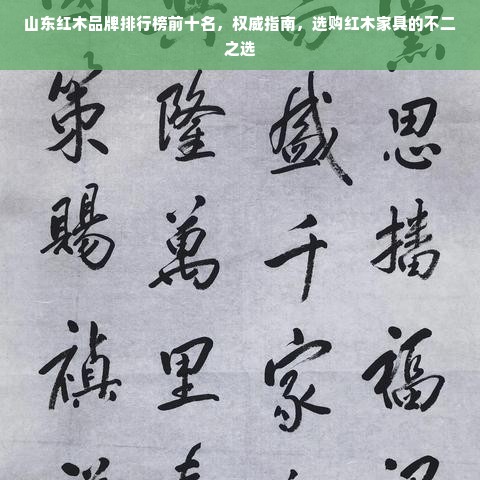 山东红木品牌排行榜前十名，权威指南，选购红木家具的不二
之选
思播福
盛千家
隆萬里
策賜禎